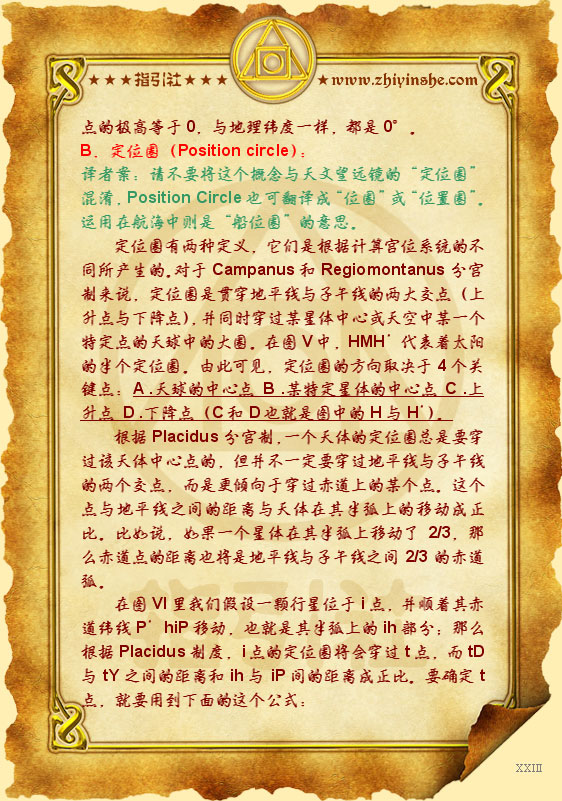 ★★★指引社★★★
★www.zhiyinshe.com
点的极高等于0，与地理纬度一样，都是0°。
B．定位圈（Position circle）：
译者案：请不要将这个概念与天文望远镜的“定位圈”
混淆，Position Circle也可翻译成“位圈”或“位置圈”。
运用在航海中则是“船位圈”的意思。
定位圈有两种定义，它们是根据计算宫位系统的不
同所产生的。对于Campanus和Regiomontanus分宫
制来说，定位圈是贯穿地平线与子午线的两大交点（上
升点与下降点），并同时穿过某星体中心或天空中某一个
特定点的天球中的大圈。在图V中，HMH′代表着太阳
的半个定位圈。由此可见，定位圈的方向取决于4个关
键点：A.天球的中心点 B.某特定星体的中心点 C.上
升点 D.下降点（C和D也就是图中的H与H′）。
根据Placidus分宫制，一个天体的定位圈总是要穿
过该天体中心点的，但并不一定要穿过地平线与子午线
的两个交点，而是更倾向于穿过赤道上的某个点。这个
点与地平线之间的距离与天体在其半弧上的移动成正
比。比如说，如果一个星体在其半弧上移动了 2/3，那
么赤道点的距离也将是地平线与子午线之间 2/3 的赤道
弧。
在图VI里我们假设一颗行星位于i点，并顺着其赤
道纬线P′hiP移动，也就是其半弧上的ih部分；那么
根据Placidus制度，i点的定位圈将会穿过t点，而tD
与tY之间的距离和ih与iP间的距离成正比。要确定t
点，就要用到下面的这个公式：
指引社
XXIII